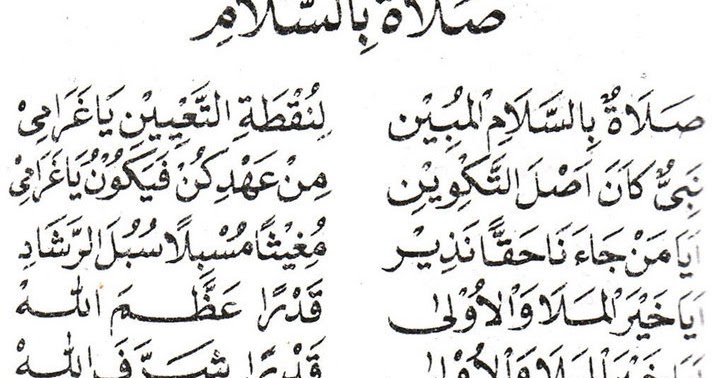 صَلَاةٌ بِالسَّلَامِ
صَلَاةٌ بِالسَّلَامِ الْمُبِيْنِ لِنُقْطَةِ التَّعْيِيْنِ يَاغَرَامِيْ
نَبِيٌّ كَانَ اَصْلَ التَّكْوِيْنِ مِنْ عَهْدِ كُنْ فَيَكُوْنُ يَاغَرَامِيْ
اَيَا مَنْ جَاءَنَا حَقًّا نَذِيْر مُغِيْثًا مُسْبِلًا سُبُلَ الرَّشَادِ
اَيَا خَيْرَ الْمَلَا وَالْاُوْلٰى قَدْرًا عَظَّمَ اللهْ
اَيَا خَيْرَ الْمَلَا وَالْاُوْلٰى قَدْرًا شَرَّفَ اللهْ